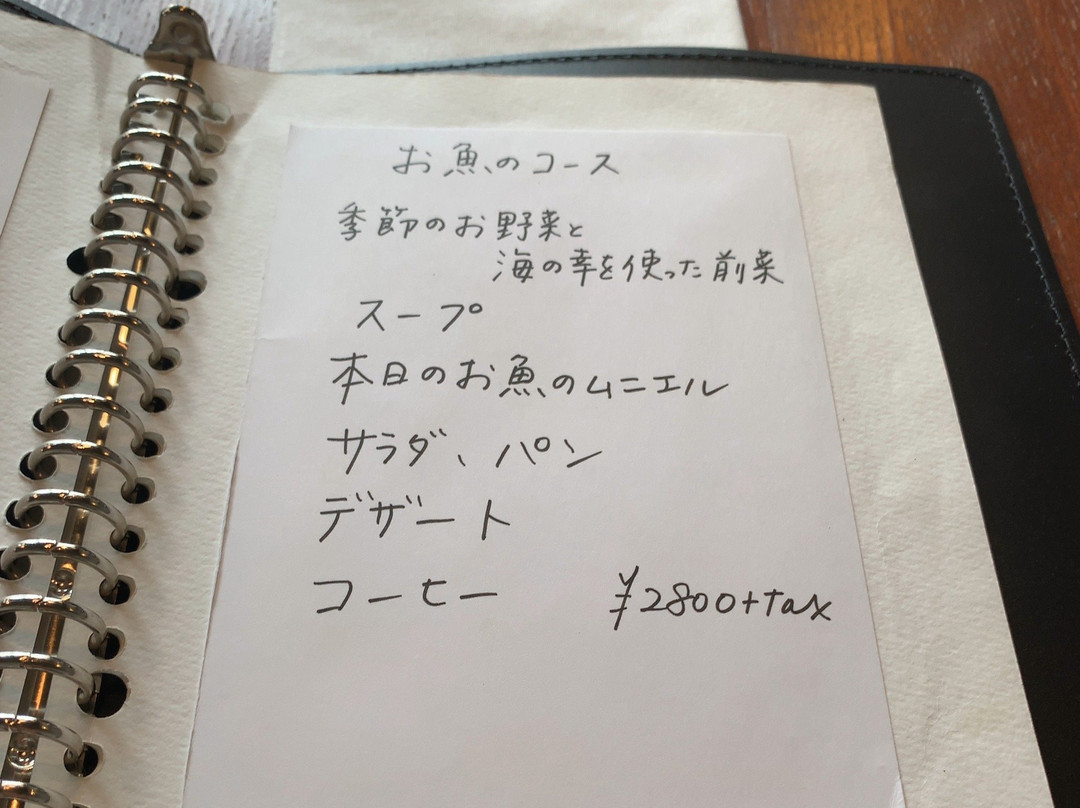 お魚のコース
季節のお野菜と
海の幸を使った前菜
スープ
本日のお魚のムニエル
サラダ、パン
デザート
コーヒー
¥2800+tax